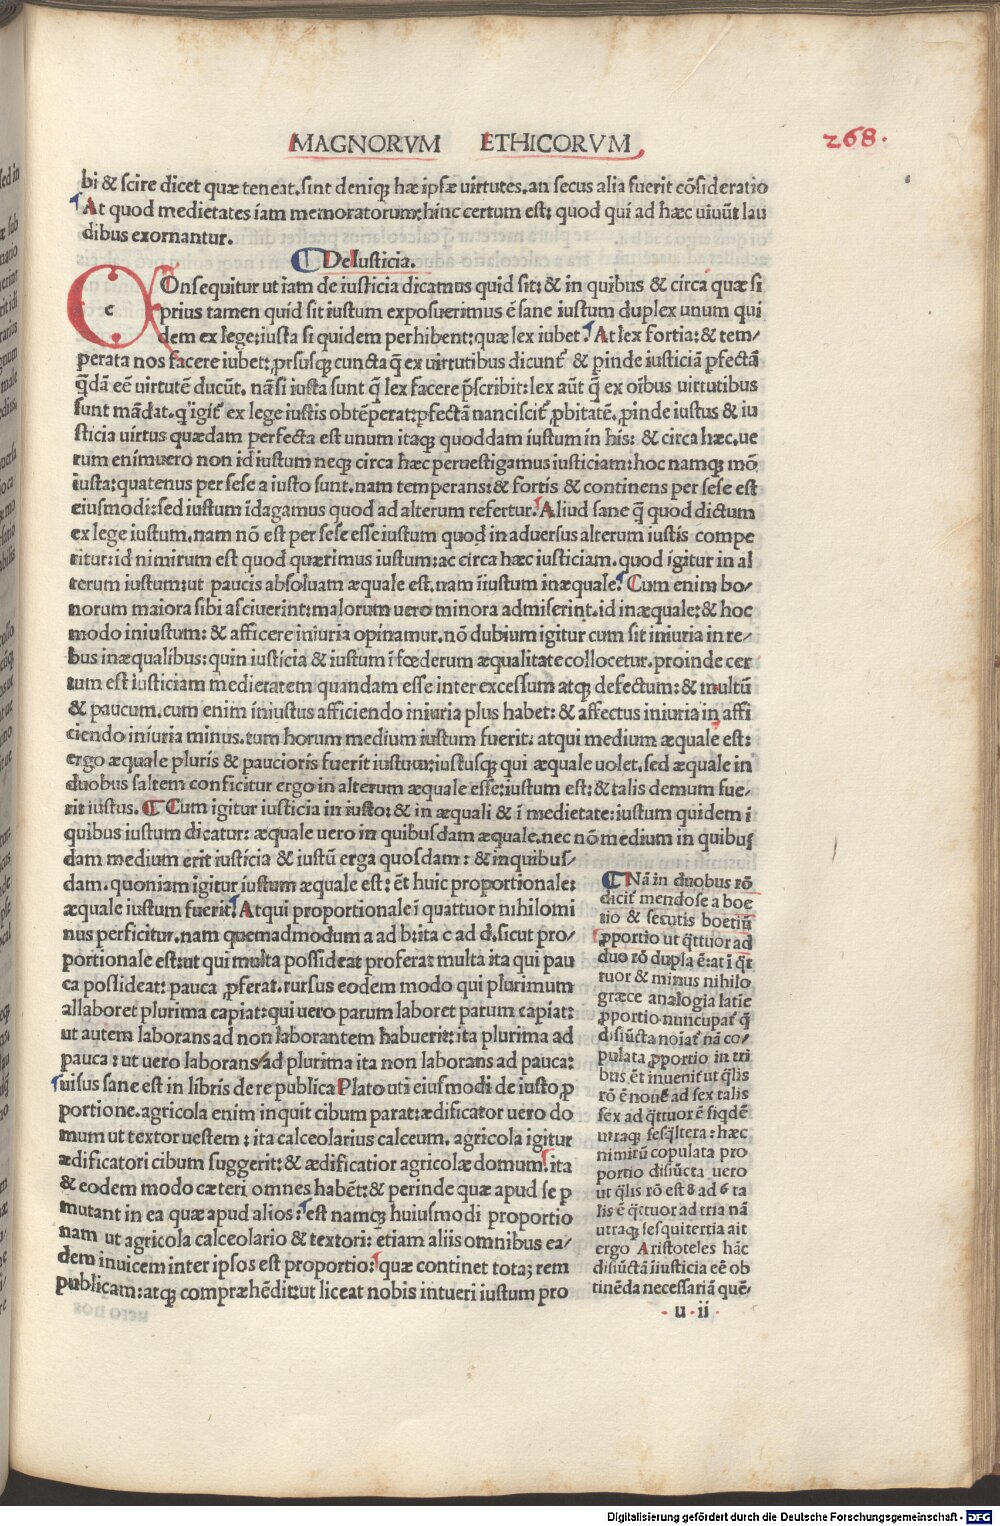 MAGNORVM ETHICORVM
268.
bi & scire dicet quæ teneat. sint deniqꝫ hæ ipsæ uirtutes. an secus alia fuerit cōsideratio
At quod medietates iam memoratorum: hinc certum est: quod qui ad hæc uiuūt lau
dibus exornantur.
De Iusticia.
c
Onsequitur ut iam de iusticia dicamus quid sit: & in quibus & circa quæ si
prius tamen quid sit iustum exposuerimus ē sane iustum duplex unum qui
dem ex lege: iusta si quidem perhibent: quæ lex iubet. At lex fortia: & tem/
perata nos facere iubet: ꝓrsusqꝫ cuncta q̄ ex uirtutibus dicunt̄ & ꝑinde iusticiā ꝑfectā
q̄dā eē uirtutē ducūt. nā si iusta sunt q̄ lex facere p̄scribit: lex aūt q̄ ex oībus uirtutibus
sunt mādat. q igit̄ ex lege iustis obtēperat: ꝑfectā nanciscit̄ ꝓbitatē, ꝓinde iustus & iu
sticia uirtus quædam perfecta est unum itaqꝫ quoddam iustum in his: & circa hæc. ue
rum enimuero non id iustum neqꝫ circa hæc peruestigamus iusticiam: hoc namqꝫ mō
iusta: quatenus per sese a iusto sunt. nam temperans: & fortis & continens per sese est
eiusmodi: sed iustum īdagamus quod ad alterum refertur. Aliud sane q̄ quod dictum
ex lege iustum. nam nō est per sese esse iustum quod in aduersus alterum iustis compe
titur: id nimirum est quod quærimus iustum: ac circa hæc iusticiam. quod igitur in al
terum iustum: ut paucis absoluam æquale est. nam īiustum inæquale. Cum enim bo/
norum maiora sibi asciuerint: malorum uero minora admiserint. id inæquale: & hoc
modo iniustum: & afficere iniuria opinamur. nō dubium igitur cum sit iniuria in re/
bus inæqualibus: quin iusticia & iustum ī fœderum æqualitate collocetur. proinde cer
tum est iusticiam medietatem quandam esse inter excessum atqꝫ defectum: & multū
& paucum. cum enim iniustus afficiendo iniuria plus habet: & affectus iniuria in affi
ciendo iniuria minus. tum horum medium iustum fuerit. atqui medium æquale est:
ergo æquale pluris & paucioris fuerit iustum: iustusqꝫ qui æquale uolet. sed æquale in
duobus saltem conficitur ergo in alterum æquale esse: iustum est: & talis demum fue/
rit iustus. Cum igitur iusticia in iusto: & in æquali & ī medietate: iustum quidem ī
quibus iustum dicatur: æquale uero in quibusdam æquale. nec nō medium in quibus
dam medium erit iusticia & iustū erga quosdam: & in quibus/
dam. quoniam igitur iustum æquale est: ēt huic proportionale:
æquale iustum fuerit. Atqui proportionale ī quattuor nihilomi
nus perficitur. nam quemadmodum a ad b: ita c ad d. sicut pro/
portionale est: ut qui multa possideat proferat multa ita qui pau
ca possideat: pauca ꝓferat. rursus eodem modo qui plurimum
allaboret plurima capiat: qui uero parum laboret parum capiat:
ut autem laborans ad non laborantem habuerit: ita plurima ad
pauca: ut uero laborans ad plurima ita non laborans ad pauca:
uisus sane est in libris de re publica Plato uti eiusmodi de iusto ꝓ
portione. agricola enim inquit cibum parat: ædificator uero do
mum ut textor uestem: ita calceolarius calceum. agricola igitur
ædificatori cibum suggerit: & ædificatior agricolæ domum. ita
& eodem modo cæteri omnes habēt: & perinde quæ apud se ꝑ
mutant in ea quæ apud alios: est namqꝫ huiusmodi proportio
nam ut agricola calceolario & textori: etiam aliis omnibus ea/
dem inuicem inter ipsos est proportio: quæ continet totaꝫ rem
publicam: atqꝫ compræhēdit: ut liceat nobis intueri iustum pro
Nā in duobus rō
dicit̄ mendose a boe
tio & secutis boetiū
ꝓportio ut q̄ttuor ad
duo rō dupla ē: at ī q̄t
tuor & minus nihilo
græce analogia latie
ꝓportio nuncupat̄ q̄
disiūcta noīat̄ nā co/
pulata ꝓportio in tri
bus ēt inuenit̄ ut q̄lis
rō ē nouē ad sex talis
sex ad q̄ttuor ē siqdē
utraqꝫ sesq̄ltera: hæc
nimirū copulata pro
portio disiūcta uero
ut q̄lis rō est 8 ad 6 ta
lis ē q̄ttuor ad tria nā
utraqꝫ sesquitertia ait
ergo Aristoteles hāc
disiūctā iiusticia eē ob
tinēda necessariā quē/
u ii
Digitalisierung gefördert durch die Deutsche Forschungsgemeinschaft - DFG